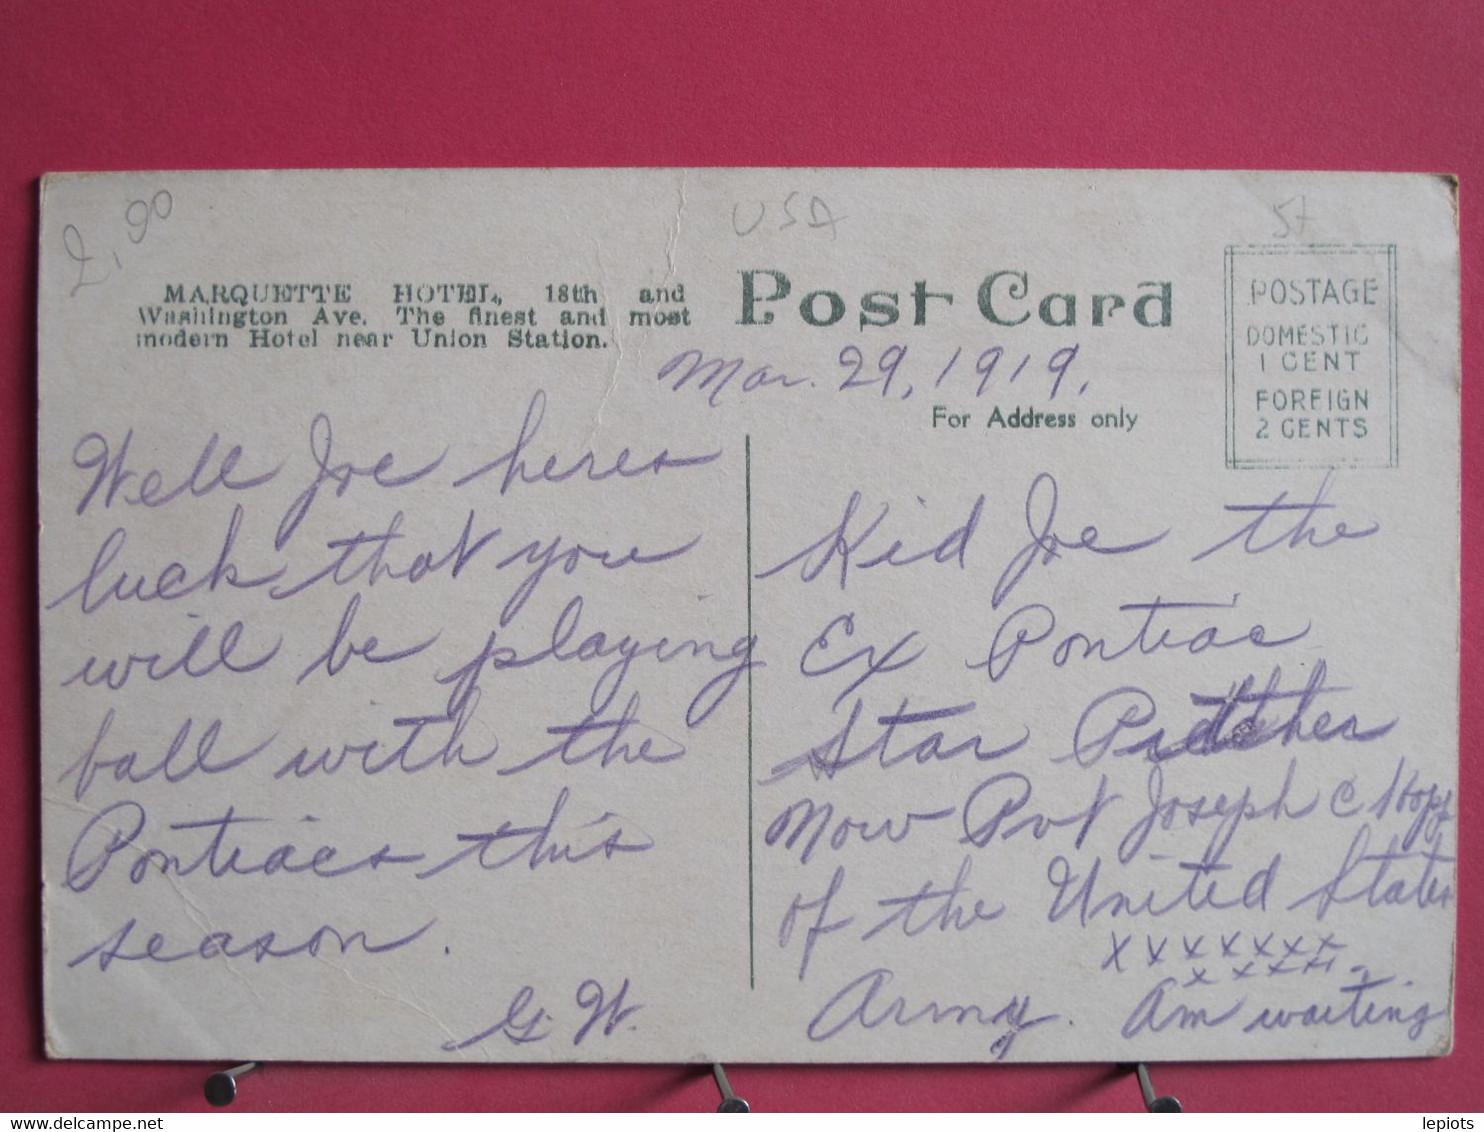 2,90
USA
St
MARQUETTE HOTEL, 18th and
Washington Ave. The finest and most
modern Hotel near Union Station.
Post Card
POSTAGE
DOMESTIC
1 CENT
FOREIGN
2 CENTS
Mar. 29, 1919.
For Address only
Well Joe heres
luck that you
will be playing
ball with the
Pontiacs this
season.
G. W.
Kid Joe the
Ex Pontiac
Star Pitcher
Now Pvt Joseph C Hopp
of the United States
x x x x x x x
x x x x x
Army. Am waiting
lepiots
www.delcampe.net